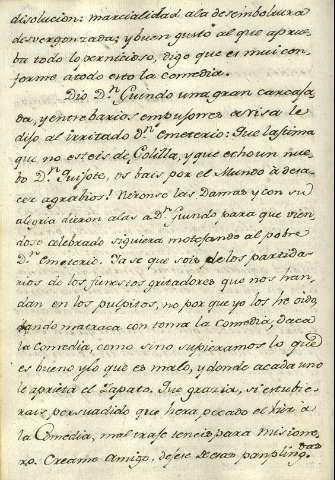 disolucion; marcialidad a la desemboltura
desvergonzada; y buen gusto al que aprue-
ba todo lo pernicioso, digo que es mui con-
forme a todo esto la comedia.
Dio Dn Guindo una gran carcaja-
da, y entre barias embusones a visa le
dijo al irritado Dn Emeterio: Que lastima
que no esteis de Golilla, y que echo un nue-
bo Dn Quijote, os bais por el Mundo à desa-
cer agrabios! Rieronse las Damas y con su
algria dieron alas a Dn Guindo para que vien-
dose celebrado siguiera motejando al pobre
Dn Emeterio. Ya se que sois de los partida-
rios de los funestos gritadores que nos han-
dan en los pulpitos, no por que yo los he oido,
dando matraca con toma la comedia, daca
la Comedia, como sino supieramos lo que
es bueno y lo que es malo, y donde a cada uno
le aprieta el Zapato. Que grazia, si estubie-
rais persuadido que hera pecado el hir a
la Comedia, mal traje teneis para misione-
ro. Creame Amigo, dejese de esas